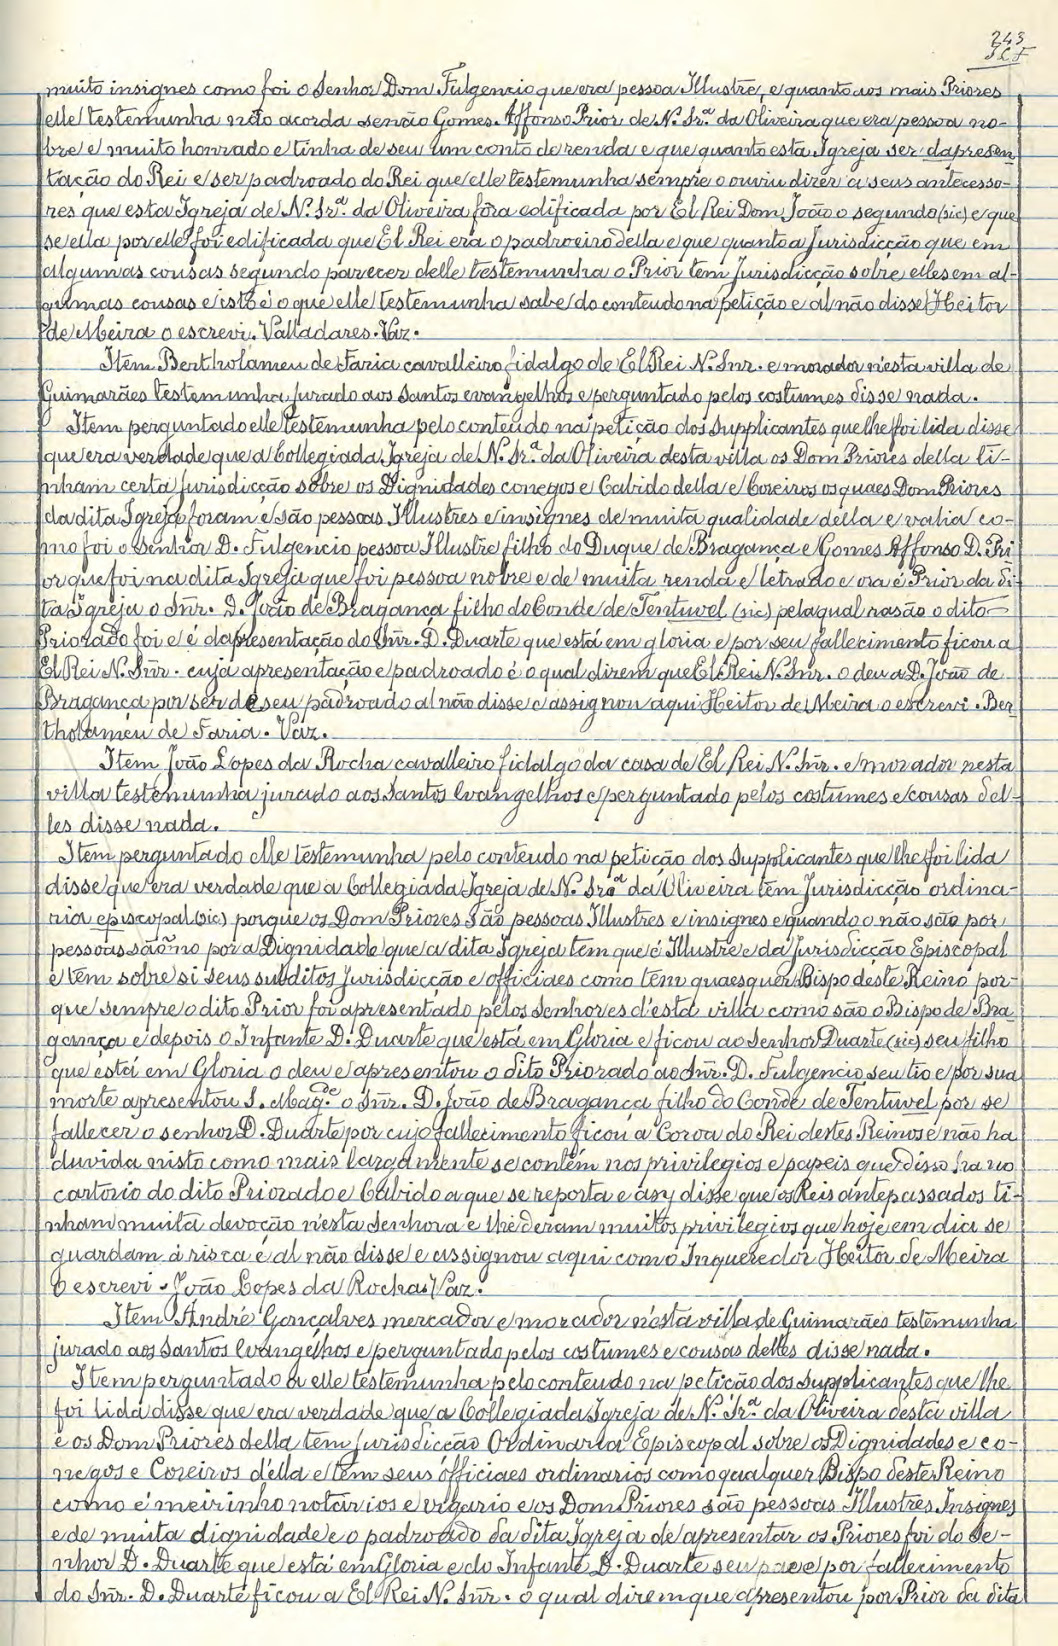 243
muito insignes como foi o Senhor Dom Fulgencio que era pessoa Illustre, e quanto aos mais Priores
elle testemunha não acorda senão Gomes Affonso Prior de N. Sr.ª da Oliveira que era pessoa no-
bre e muito honrado e tinha de seu um conto de renda e que quanto esta Igreja ser dapresen
tação do Rei e ser padroado do Rei que elle testemunha sempre o ouviu dizer a seus antecesso-
res que esta Igreja de N. Sr.ª da Oliveira fôra edificada por El Rei Dom João o segundo (sic) e que
se ella por elle foi edificada que El Rei era o padroeiro della e que quanto a Jurisdicção que em
algumas cousas segundo parecer delle testemunha o Prior tem Jurisdicção sobre elles em al-
gumas cousas e isto é o que elle testemunha sabe do conteudo na petição e al não disse Heitor
de Meira o escrevi. Valladares. Vaz.
Item Bertholameu de Faria cavalleiro fidalgo de El Rei N. Snr. e morador n'esta villa de
Guimarães testemunha jurado aos Santos evangelhos e perguntado pelos costumes disse nada.
Item perguntado elle testemunha pelo conteudo na petição dos Supplicantes que lhe foi lida disse
que era verdade que a Collegiada Igreja de N. Sr.ª da Oliveira desta villa os Dom Priores della ti-
nham certa Jurisdicção sobre os Dignidades conegos e Cabido della e Coreiros os quaes Dom Priores
da dita Igreja foram e são pessoas Illustres e insignes de muita qualidade della e valia co-
mo foi o senhor D. Fulgencio pessoa Illustre filho do Duque de Bragança e Gomes Affonso D. Pri
or que foi na dita Igreja que foi pessoa nobre e de muita renda e letrado e ora é Prior da di-
ta Igreja o Snr. D. João de Bragança filho do Conde de Tentuvel (sic) pela qual rasão o dito
Priorado foi e é dapresentação do Snr. D. Duarte que está em gloria e por seu fallecimento ficou a
El Rei N. Snr. cuja apresentação e padroado é o qual dizem que El Rei N. Snr. o deu a D. João de
Bragança por ser de seu padroado al não disse e assignou aqui Heitor de Meira o escrevi. Ber
tholameu de Faria. Vaz.
Item João Lopes da Rocha cavalleiro fidalgo da casa de El Rei N. Snr. e morador nesta
villa testemunha jurado aos Santos Evangelhos e perguntado pelos costumes e cousas del-
les disse nada.
Item perguntado elle testemunha pelo conteudo na petição dos Supplicantes que lhe foi lida
disse que era verdade que a Collegiada Igreja de N. Srª da Oliveira tem Jurisdicção ordina-
ria episcopal (sic) porque os Dom Priores são pessoas Illustres e insignes e quando o não são por
pessoas são-no por a Dignidade que a dita Igreja tem que é Illustre e da Jurisdicção Episcopal
e tem sobre si seus subditos Jurisdicção e officiaes como tem quaesquer Bispo deste Reino por-
que sempre o dito Prior foi apresentado pelos Senhores d'esta villa como são o Bispo de Bra-
gança e depois o Infante D. Duarte que está em Gloria e ficou ao Senhor Duarte (sic) seu filho
que está em Gloria o deu e apresentou o dito Priorado ao Snr. D. Fulgencio seu tio e por sua
morte apresentou S. Mag.de o Snr. D. João de Bragança filho do Conde de Tentuvel por se
fallecer o senhor D. Duarte por cujo fallecimento ficou a Coroa do Rei destes Reinos e não ha
duvida nisto como mais largamente se contém nos privilegios e papeis que disso ha no
cartorio do dito Priorado e Cabido a que se reporta e asy disse que os Reis antepassados ti-
nham muita devoção n'esta Senhora e lhe deram muitos privilegios que hoje em dia se
guardam á risca e al não disse e assignou aqui como Inqueredor Heitor de Meira
o escrevi. João Lopes da Rocha. Vaz.
Item André Gonçalves mercador e morador n'esta villa de Guimarães testemunha
jurado aos Santos Evangelhos e perguntado pelos costumes e cousas delles disse nada.
Item perguntado a elle testemunha pelo conteudo na petição dos Supplicantes que lhe
foi lida disse que era verdade que a Collegiada Igreja de N. Sr.ª da Oliveira desta villa
e os Dom Priores della tem Jurisdicção Ordinaria Episcopal sobre os Dignidades e co-
negos e Coreiros d'ella e tem seus officiaes ordinarios como qualquer Bispo deste Reino
como é meirinho notarios e vigario e os Dom Priores são pessoas Illustres Insignes
e de muita dignidade e o padroado da dita Igreja de apresentar os Priores foi do Se-
nhor D. Duarte que está em Gloria e do Infante D. Duarte seu pae e por fallecimento
do Snr. D. Duarte ficou a El Rei N. Snr. o qual dizem que apresentou por Prior da dita